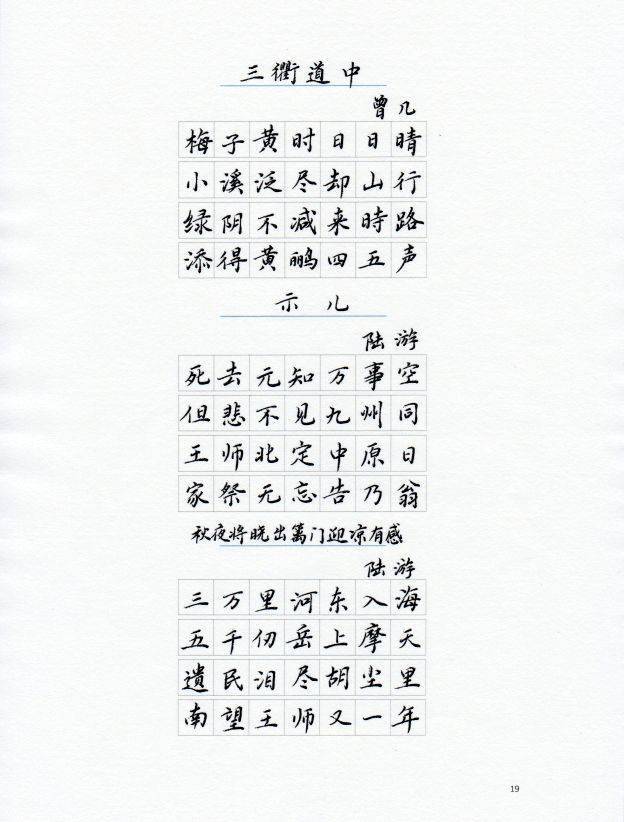 三衢道中
曾几
梅子黄时日日晴
小溪泛尽却山行
绿阴不减来時路
添得黄鹂四五声
示儿
陆游
死去元知万事空
但悲不见九州同
王师北定中原日
家祭无忘告乃翁
秋夜将晓出篱门迎凉有感
陆游
三万里河东入海
五千仞岳上摩天
遗民泪尽胡尘里
南望王师又一年
19